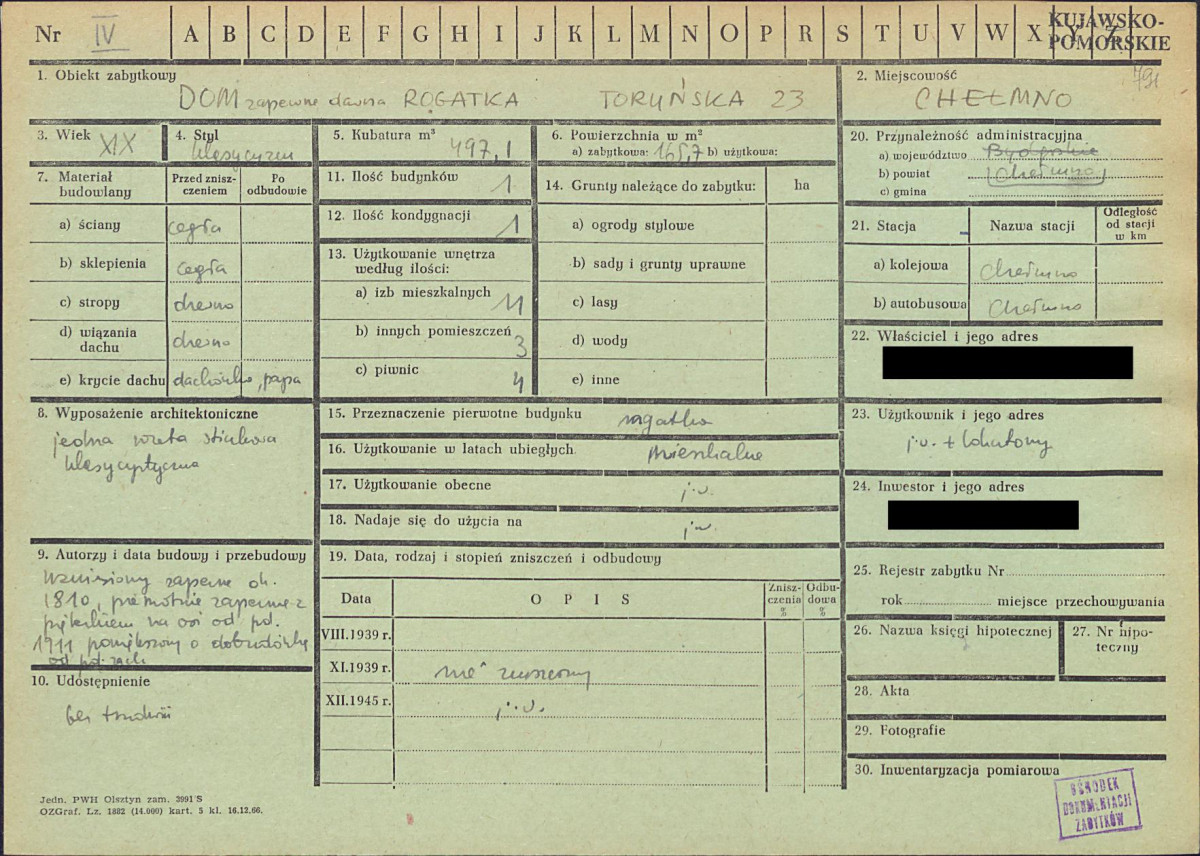 Nr IV A B C D E F G H I J K L M N O P R S T U V W X Y Z KUJAWSKO-
POMORSKIE
1. Obiekt zabytkowy
DOM zapewne dawna ROGATKA TORUŃSKA 23
2. Miejscowość
CHEŁMNO
791
3. Wiek XIX
4. Styl
klasycyzm
5. Kubatura m³
497,1
6. Powierzchnia w m²
a) zabytkowa: 165,7 b) użytkowa:
7. Materiał
budowlany
Przed znisz-
czeniem
Po
odbudowie
a) ściany cegła
b) sklepienia cegła
c) stropy drewno
d) wiązania
dachu drewno
e) krycie dachu dachówka, papa
8. Wyposażenie architektoniczne
jedna rozeta stiukowa
klasycystyczna
9. Autorzy i data budowy i przebudowy
Wzniesiony zapewne ok.
1810, pierwotnie zapewne z
na osi od pd.
1911 powiększony o dobudówkę
od pd. zach
10. Udostępnienie
bez trudności
11. Ilość budynków 1
12. Ilość kondygnacji 1
13. Użytkowanie wnętrza
według ilości:
a) izb mieszkalnych 11
b) innych pomieszczeń 3
c) piwnic 4
14. Grunty należące do zabytku: ha
a) ogrody stylowe
b) sady i grunty uprawne
c) lasy
d) wody
e) inne
15. Przeznaczenie pierwotne budynku rogatka
16. Użytkowanie w latach ubiegłych mieszkalne
17. Użytkowanie obecne j.w.
18. Nadaje się do użycia na j.w.
19. Data, rodzaj i stopień zniszczeń i odbudowy
Data
OPIS
Znisz-
czenia
%
Odbu-
dowa
%
VIII.1939 r.
XI.1939 r. nie zniszczony
XII.1945 r. j.w.
20. Przynależność administracyjna
a) województwo Bydgoskie
b) powiat Chełmno
c) gmina
21. Stacja
Nazwa stacji
Odległość
od stacji
w km
a) kolejowa Chełmno
b) autobusowa Chełmno
22. Właściciel i jego adres
23. Użytkownik i jego adres
j.w. + lokatorzy
24. Inwestor i jego adres
25. Rejestr zabytku Nr
rok miejsce przechowywania
26. Nazwa księgi hipotecznej
27. Nr hipo-
teczny
28. Akta
29. Fotografie
30. Inwentaryzacja pomiarowa
OŚRODEK
DOKUMENTACJI
ZABYTKÓW
Jedn. PWH Olsztyn zam. 3991 S
OZGraf. Lz. 1882 (14.000) kart. 5 kl. 16.12.66.